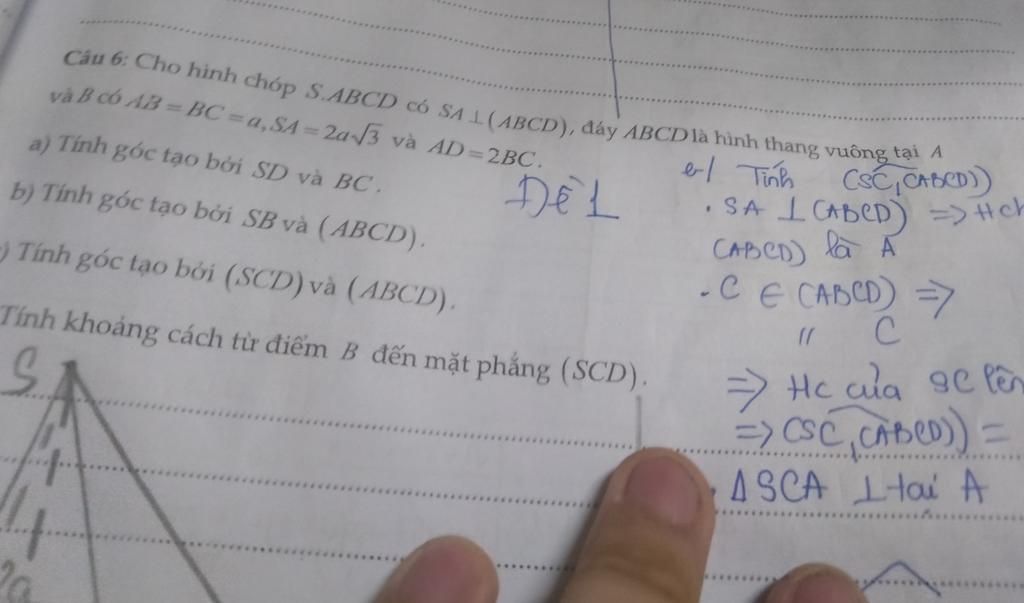 Câu 6: Cho hình chóp S.ABCD có SA⊥(ABCD), đáy ABCD là hình thang vuông tại A
và B có AB = BC = a, SA = 2a√3 và AD = 2BC.
a) Tính góc tạo bởi SD và BC.
b) Tính góc tạo bởi SB và (ABCD).
) Tính góc tạo bởi (SCD) và (ABCD).
Tính khoảng cách từ điểm B đến mặt phẳng (SCD).
ĐỀ 1
e/ Tính (SC,(ABCD))
. SA ⊥ (ABCD) => Hch
(ABCD) là A
. C ∈ (ABCD) =>
" C
=> Hc của SC lên
=> (SC,(ABCD)) =
. ΔSCA ⊥ tại A
S
2a